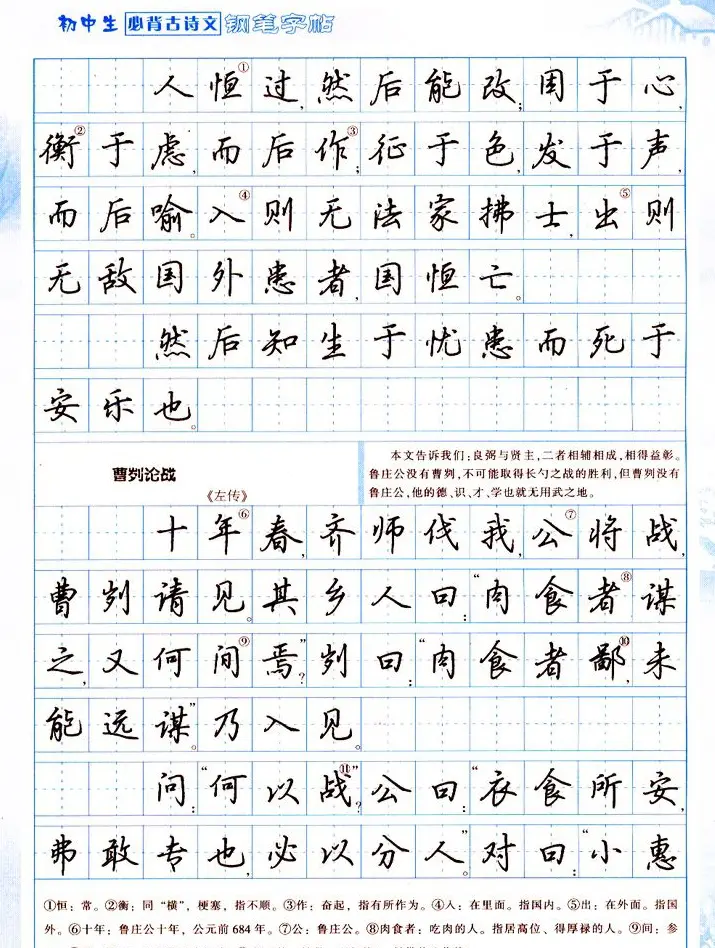 初中生 必背古诗文 钢笔字帖
人恒①过,然后能改;困于心,
衡②于虑,而后作③;征于色,发于声,
而后喻。入④则无法家拂士,出⑤则
无敌国外患者,国恒亡。
然后知生于忧患而死于
安乐也。
曹刿论战
《左传》
本文告诉我们:良弼与贤主,二者相辅相成,相得益彰。
鲁庄公没有曹刿,不可能取得长勺之战的胜利,但曹刿没有
鲁庄公,他的德、识、才、学也就无用武之地。
十年⑥春,齐师伐我,公⑦将战,
曹刿请见。其乡人曰:“肉食者⑧谋
之,又何间⑨焉?”刿曰:“肉食者鄙⑩,未
能远谋。”乃入见。
问:“何以战⑪?”公曰:“衣食所安,
弗敢专也,必以分人。”对曰:“小惠
①恒:常。②衡:同“横”,梗塞,指不顺。③作:奋起,指有所作为。④人:在里面。指国内。⑤出:在外面。指国
外。⑥十年:鲁庄公十年,公元前684年。⑦公:鲁庄公。⑧肉食者:吃肉的人。指居高位、得厚禄的人。⑨间:参